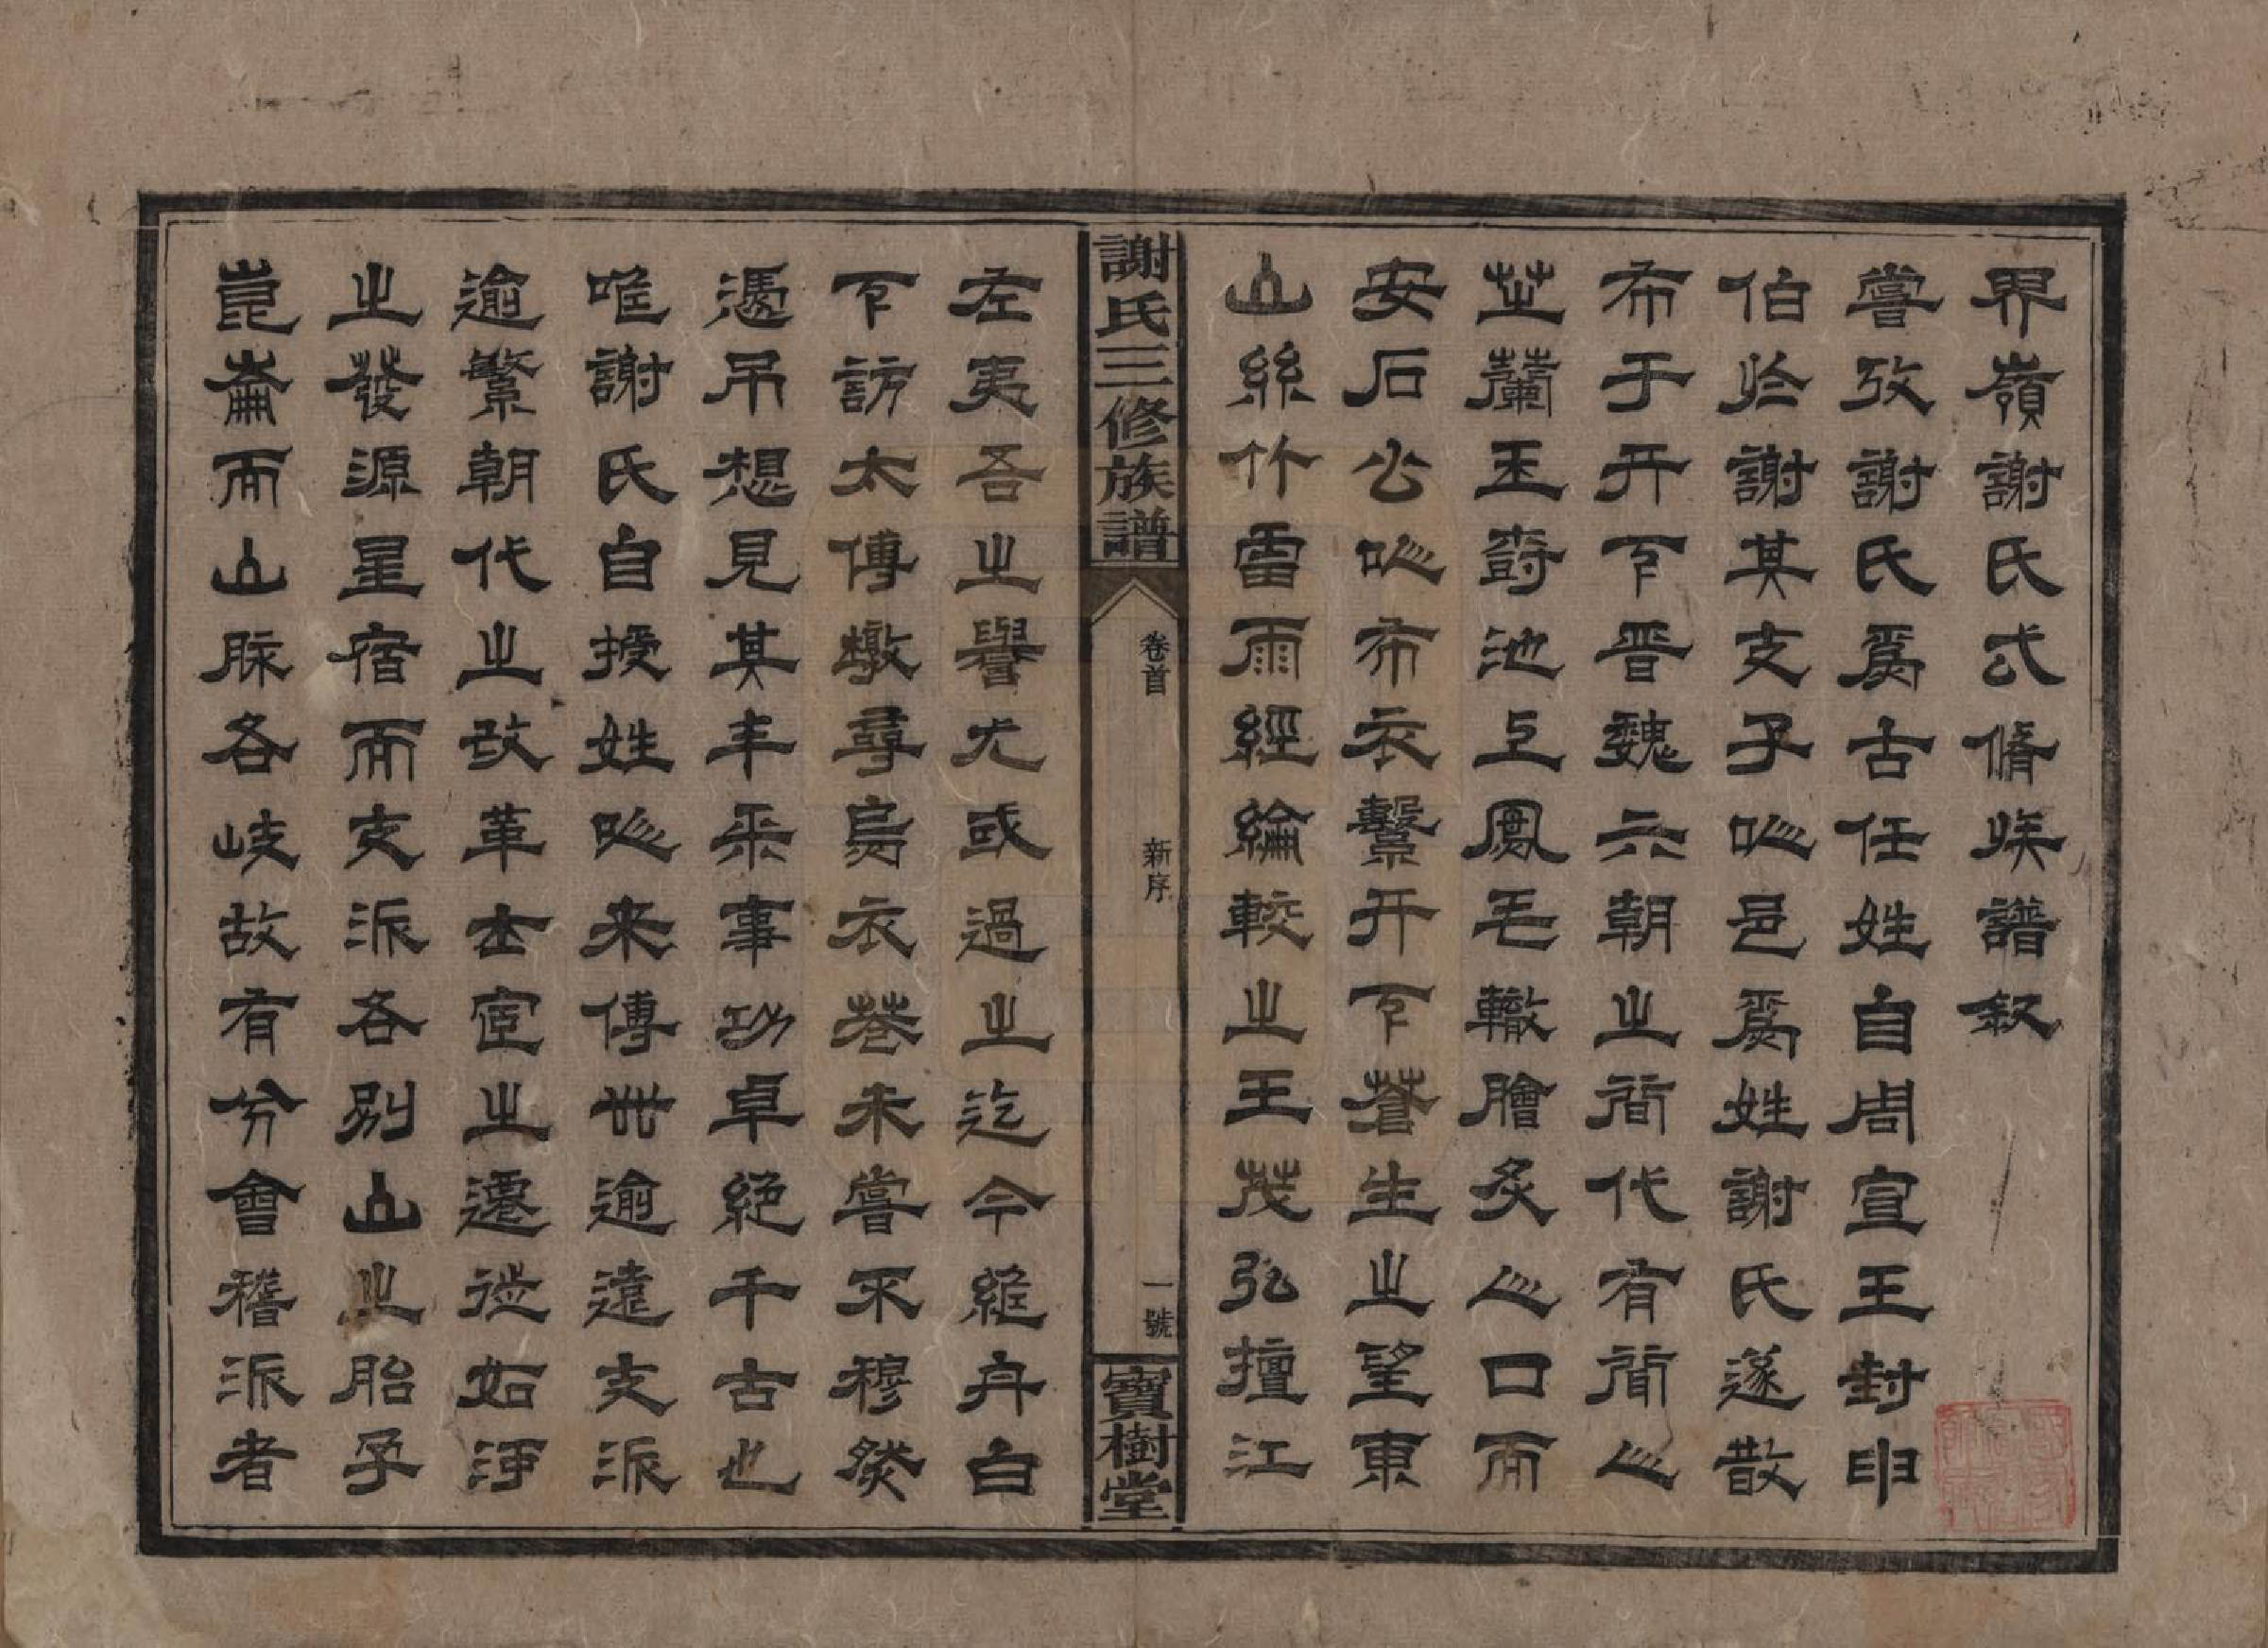 界嶺謝氏弍脩族譜叙
嘗攷謝氏爲古任姓自周宣王封申
伯於謝其支子㕥邑爲姓謝氏遂散
布于天下晋魏六朝之間代有聞人
芝蘭玉樹池上鳳毛轍膾炙人口而
安石公㕥布衣繫天下蒼生之望東
山絲竹雷雨經綸較之王茂弘擅江
謝氏三修族譜
卷首
新序
一號
寶樹堂
左夷吾之譽尤或過之迄今絙舟白
下訪太傅墩尋烏衣巷未嘗不穆然
憑吊想見其丰采事功卓絶千古也
唯謝氏自授姓㕥来傳世逾遠支派
逾繁朝代之改革士宦之遷徙如河
之發源星宿而支派各别山之胎孕
崑崙而山脉各歧故有分會稽派者